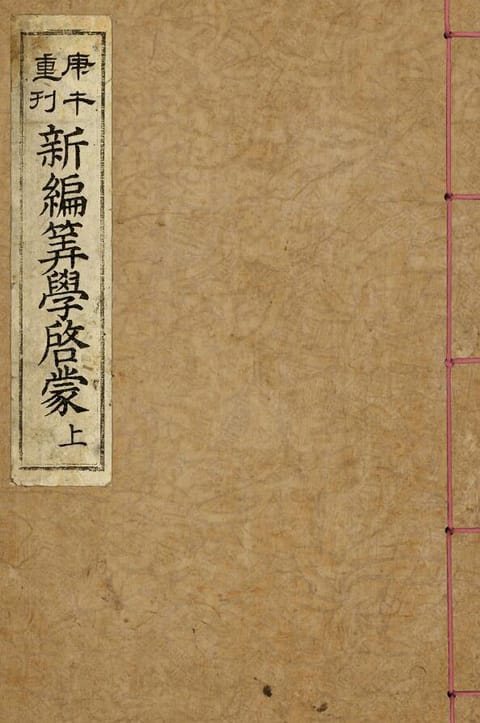 庚午
重刊
新編筭學啓蒙 上